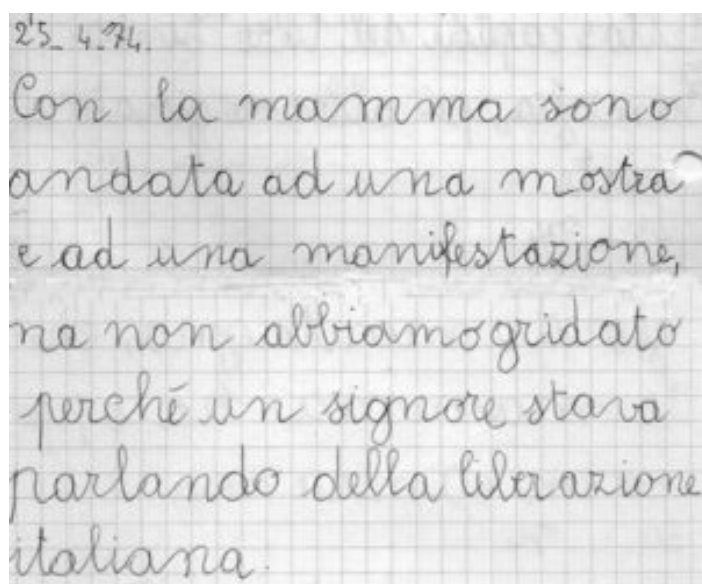 25_4_74.
Con la mamma sono
andata ad una mostra
e ad una manifestazione,
ma non abbiamo gridato
perché un signore stava
parlando della liberazione
italiana.